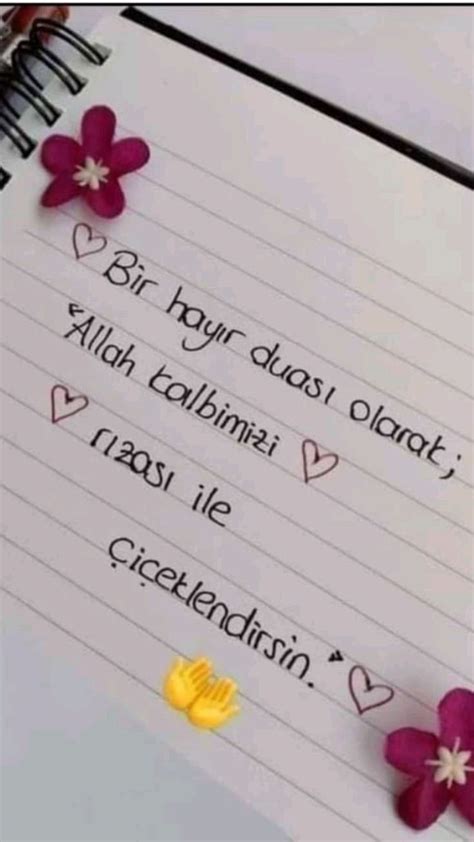 ♡ Bir hayır duası olarak;
"Allah kalbimizi ♡
♡ rızası ile
çiçeklendirsin." ♡